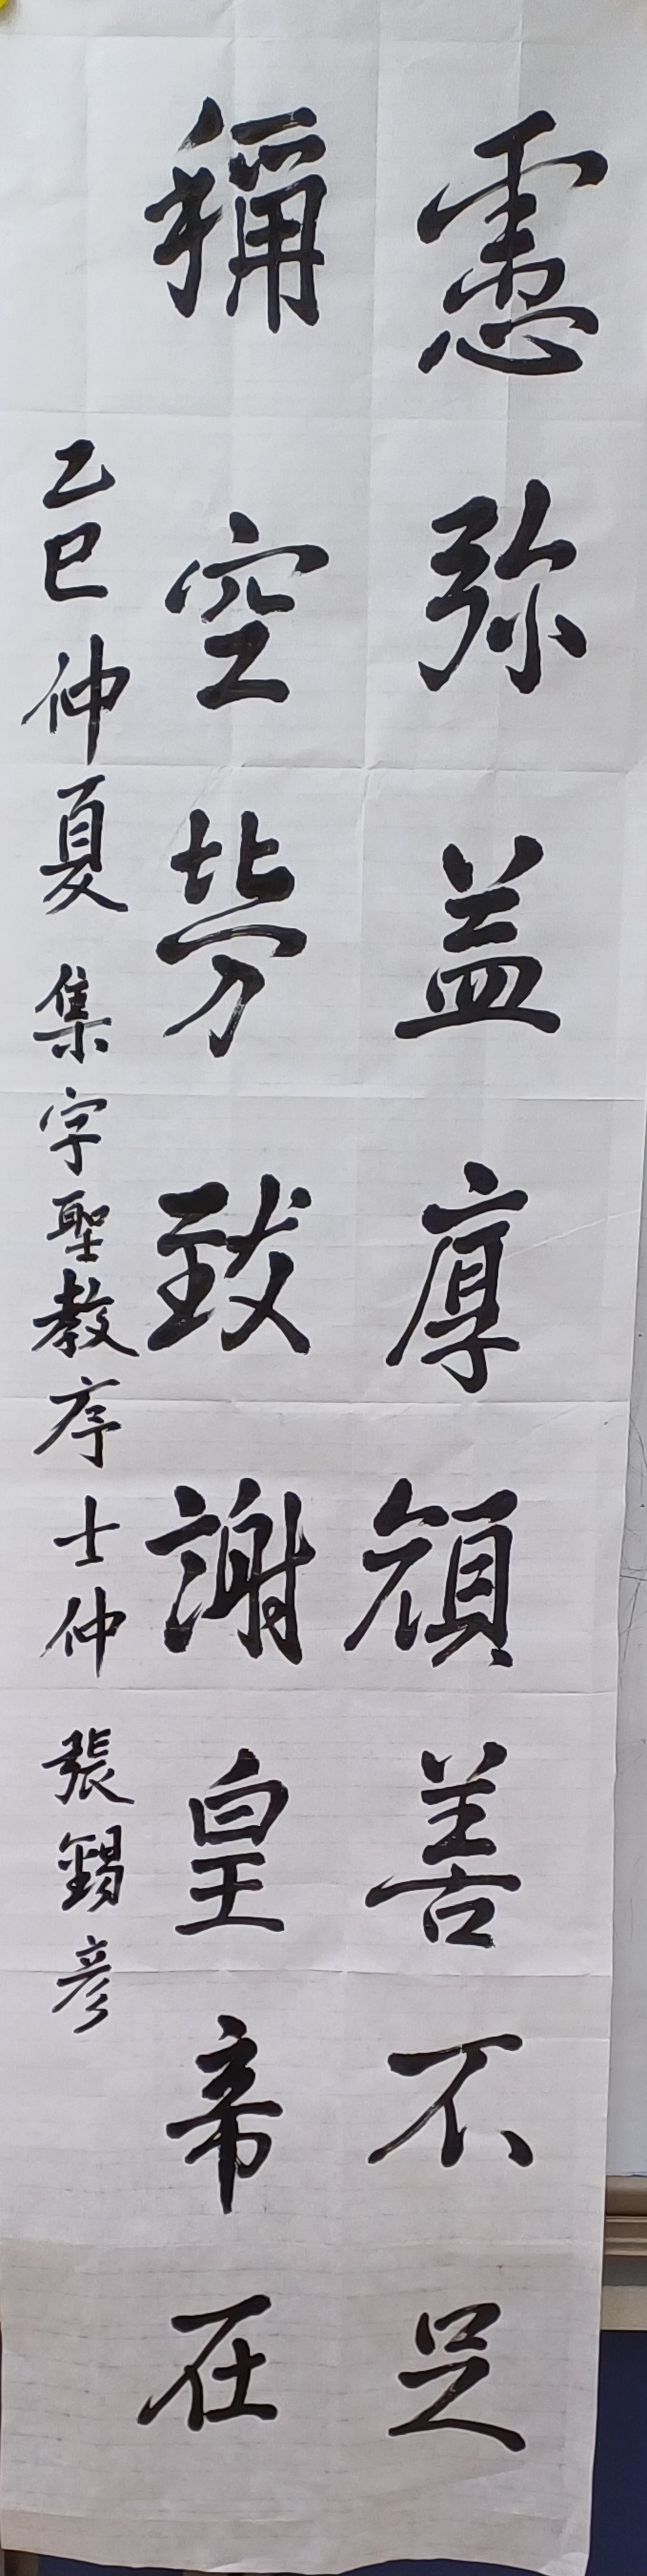 慮弥益厚顔善不足
稱空勞致謝皇帝在
乙巳仲夏集字聖教序士仲張錫彦